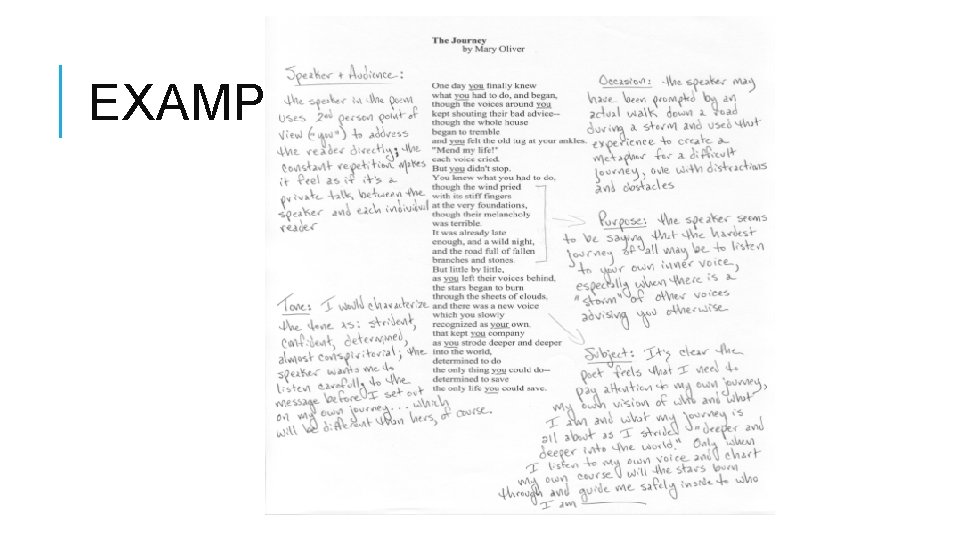 EXAMP
The Journey
by Mary Oliver
Speaker + Audience:
the speaker in the poem
uses 2nd person point of
view ("you") to address
the reader directly; the
constant repetition makes
it feel as if it's a
private talk between the
speaker and each individual
reader
Tone: I would characterize
the tone as: strident,
confident, determined,
almost conspiratorial; the
speaker wants me to
listen carefully to the
message before I set out
on my own journey... which
will be different than hers, of course.
One day you finally knew
what you had to do, and began,
though the voices around you
kept shouting their bad advice--
though the whole house
began to tremble
and you felt the old tug at your ankles.
"Mend my life!"
each voice cried.
But you didn't stop.
You knew what you had to do,
though the wind pried
with its stiff fingers
at the very foundations,
though their melancholy
was terrible.
It was already late
enough, and a wild night,
and the road full of fallen
branches and stones.
But little by little,
as you left their voices behind,
the stars began to burn
through the sheets of clouds,
and there was a new voice
which you slowly
recognized as your own,
that kept you company
as you strode deeper and deeper
into the world,
determined to do
the only thing you could do--
determined to save
the only life you could save.
Occasion: the speaker may
have been prompted by an
actual walk down a road
during a storm and used that
experience to create a
metaphor for a difficult
journey, one with distractions
and obstacles
Purpose: the speaker seems
to be saying that the hardest
journey of all may be to listen
to your own inner voice,
especially when there is a
"storm" of other voices
advising you otherwise
Subject: It's clear the
poet feels that I need to
pay attention to my own journey,
my own vision of who and what
I am and what my journey is
all about as I stride "deeper and
deeper into the world." Only when
I listen to my own voice and chart
my own course will the stars burn
through and guide me safely inside to who
I am